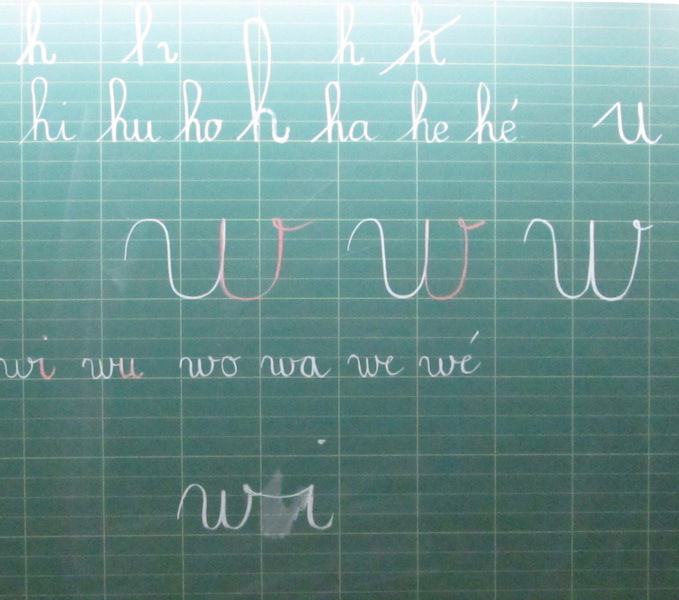 h h h k
hi hu ho h ha he hé u
w w w
wi wu wo wa we wé
wi